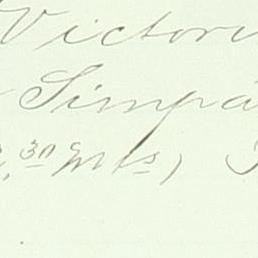 Victori
Simpa
30 Mts,